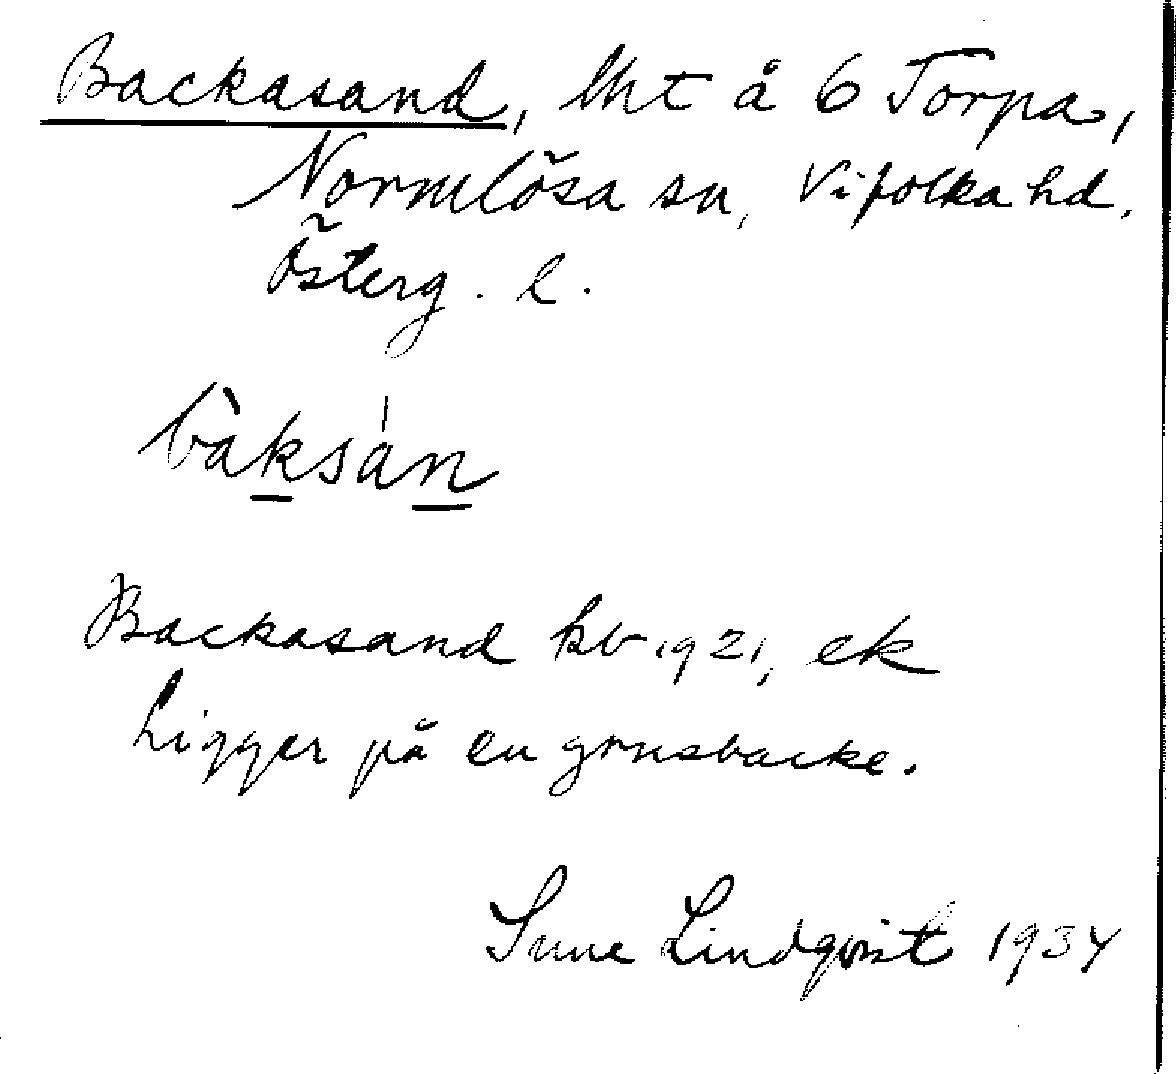 Backasand, lht å 6 Torpa,
Normlösa sn, Vifolka hd.
Österg. l.
bàksán
Backasand kb 1921, ek
Ligger på en grusbacke.
Sune Lindqvist 1934